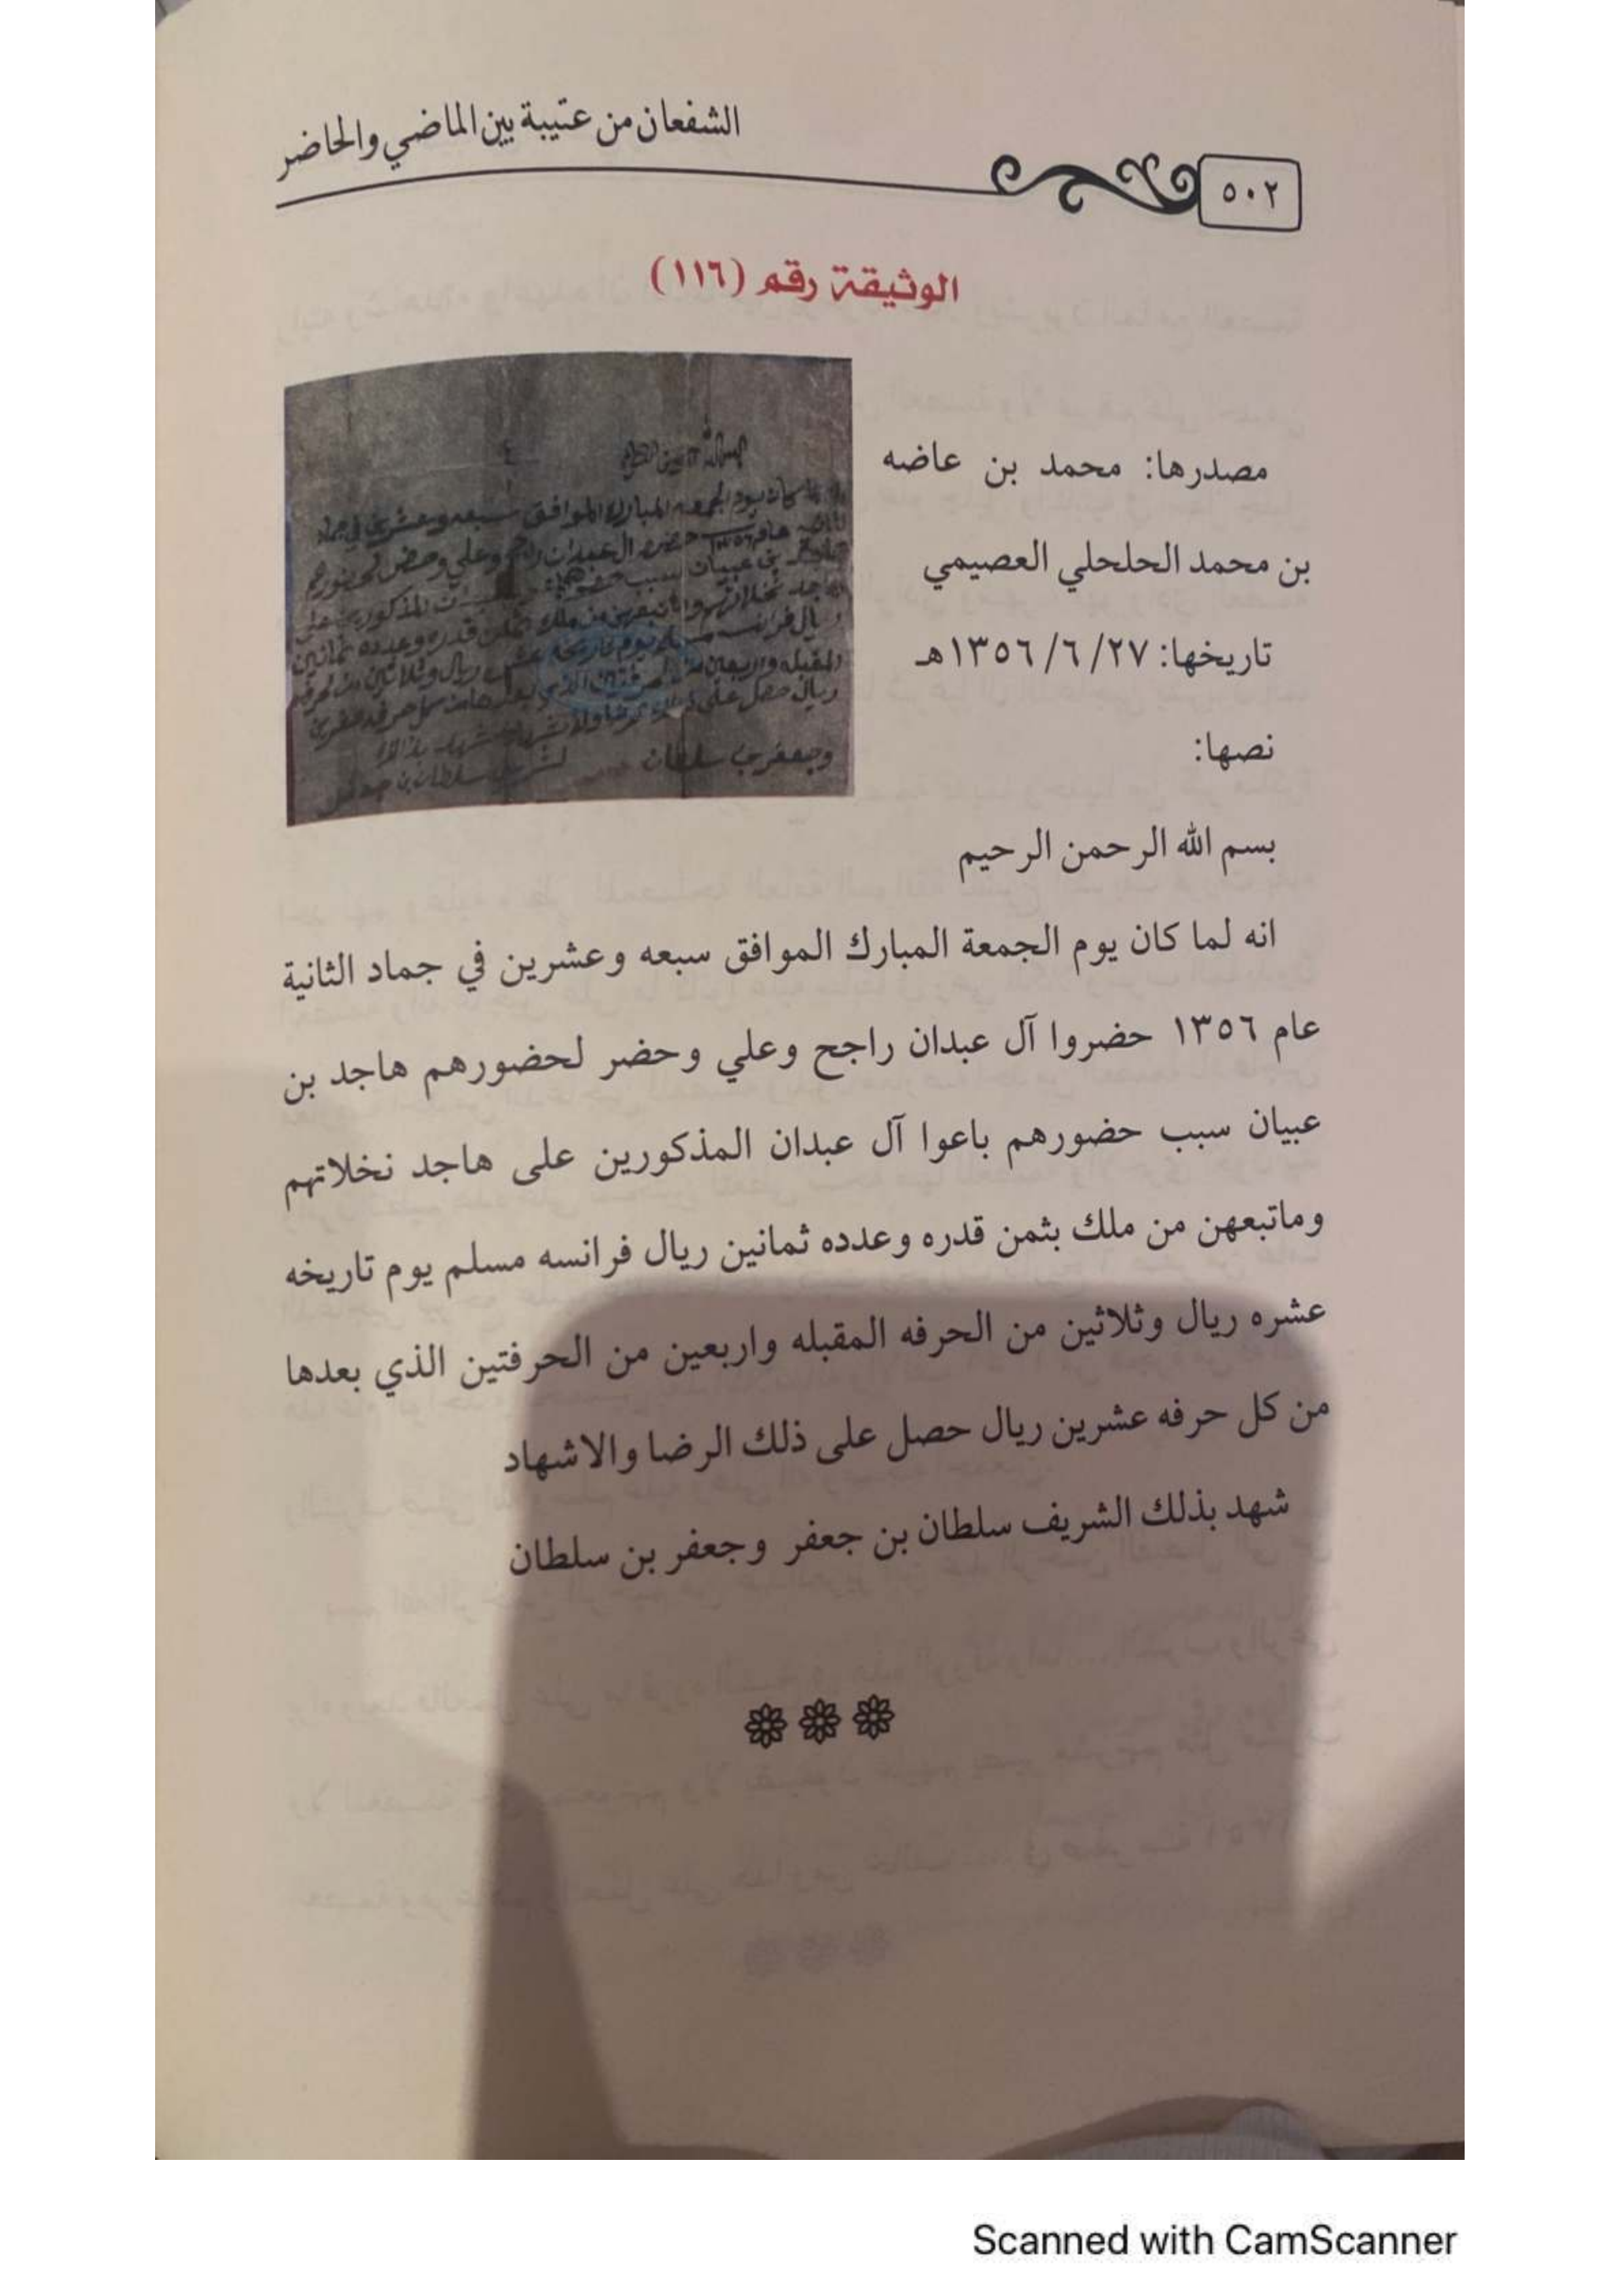 الشفعان من عتيبة بين الماضي والحاضر
٥٠٢
الوثيقة رقم (١١٦)
مصدرها: محمد بن عاضه
بن محمد الحلحلي العصيمي
تاريخها: ٢٧/ ٦/ ١٣٥٦هـ
نصها:
بسم الله الرحمن الرحيم
انه لما كان يوم الجمعة المبارك الموافق سبعه وعشرين في جماد الثانية
عام ١٣٥٦ حضروا آل عبدان راجح وعلي وحضر لحضورهم هاجد بن
عبيان سبب حضورهم باعوا آل عبدان المذكورين على هاجد نخلاتهم
وماتبعهن من ملك بثمن قدره وعدده ثمانين ريال فرانسه مسلم يوم تاريخه
عشره ريال وثلاثين من الحرفه المقبله واربعين من الحرفتين الذي بعدها
من كل حرفه عشرين ريال حصل على ذلك الرضا والاشهاد
شهد بذلك الشريف سلطان بن جعفر وجعفر بن سلطان
Scanned with CamScanner